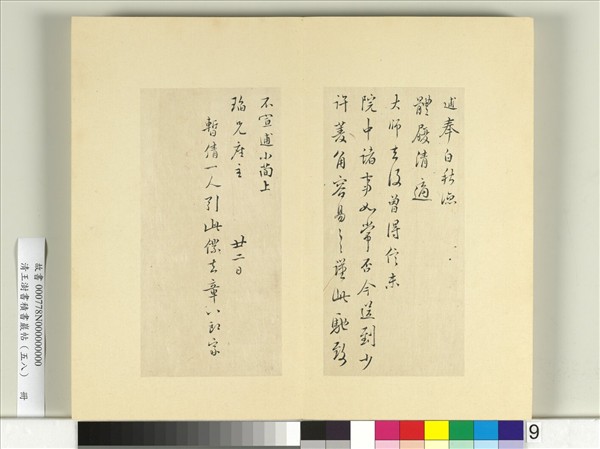 逋奉白秋涼
體履清適
大師去後曾得信未
院中諸事如常否今送到少
許菱角容易〻謹此馳致
不宣逋小簡上
瑙兄座主 廿二日
暫倩一人引此僕去章八郎家
故書 000778N000000000
清王澍書積書巖帖（五八） 冊
9